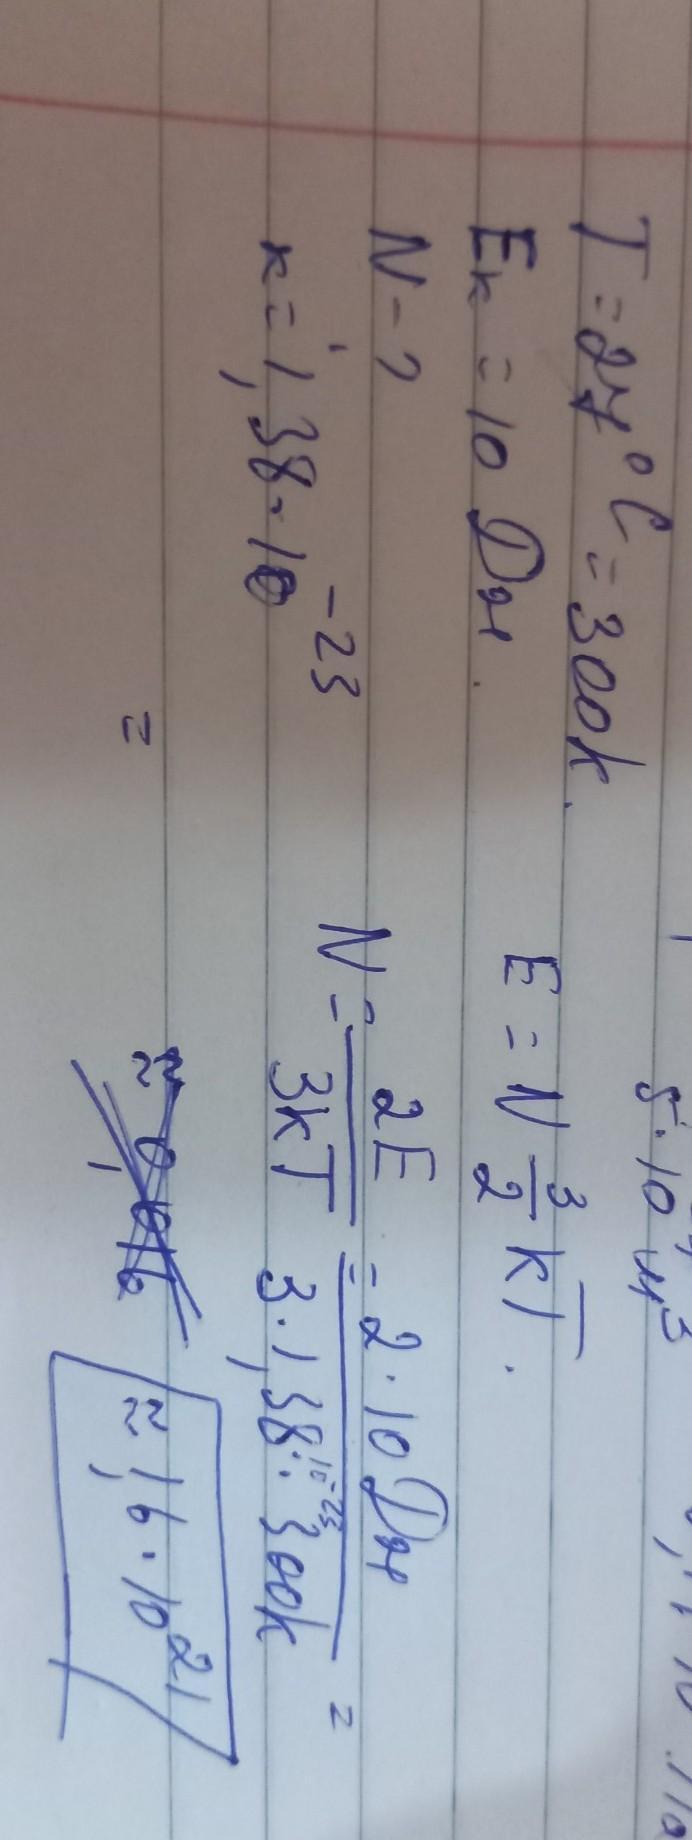 5·10 м³
T = 27°C = 300K.
Eк = 10 Дж.
N - ?
к = 1,38·10⁻²³
E = N 3/2 kT.
N = 2E/3kT = 2·10 Дж/3·1,38·10⁻²³·300K =
= ≈ 1,6·10²¹